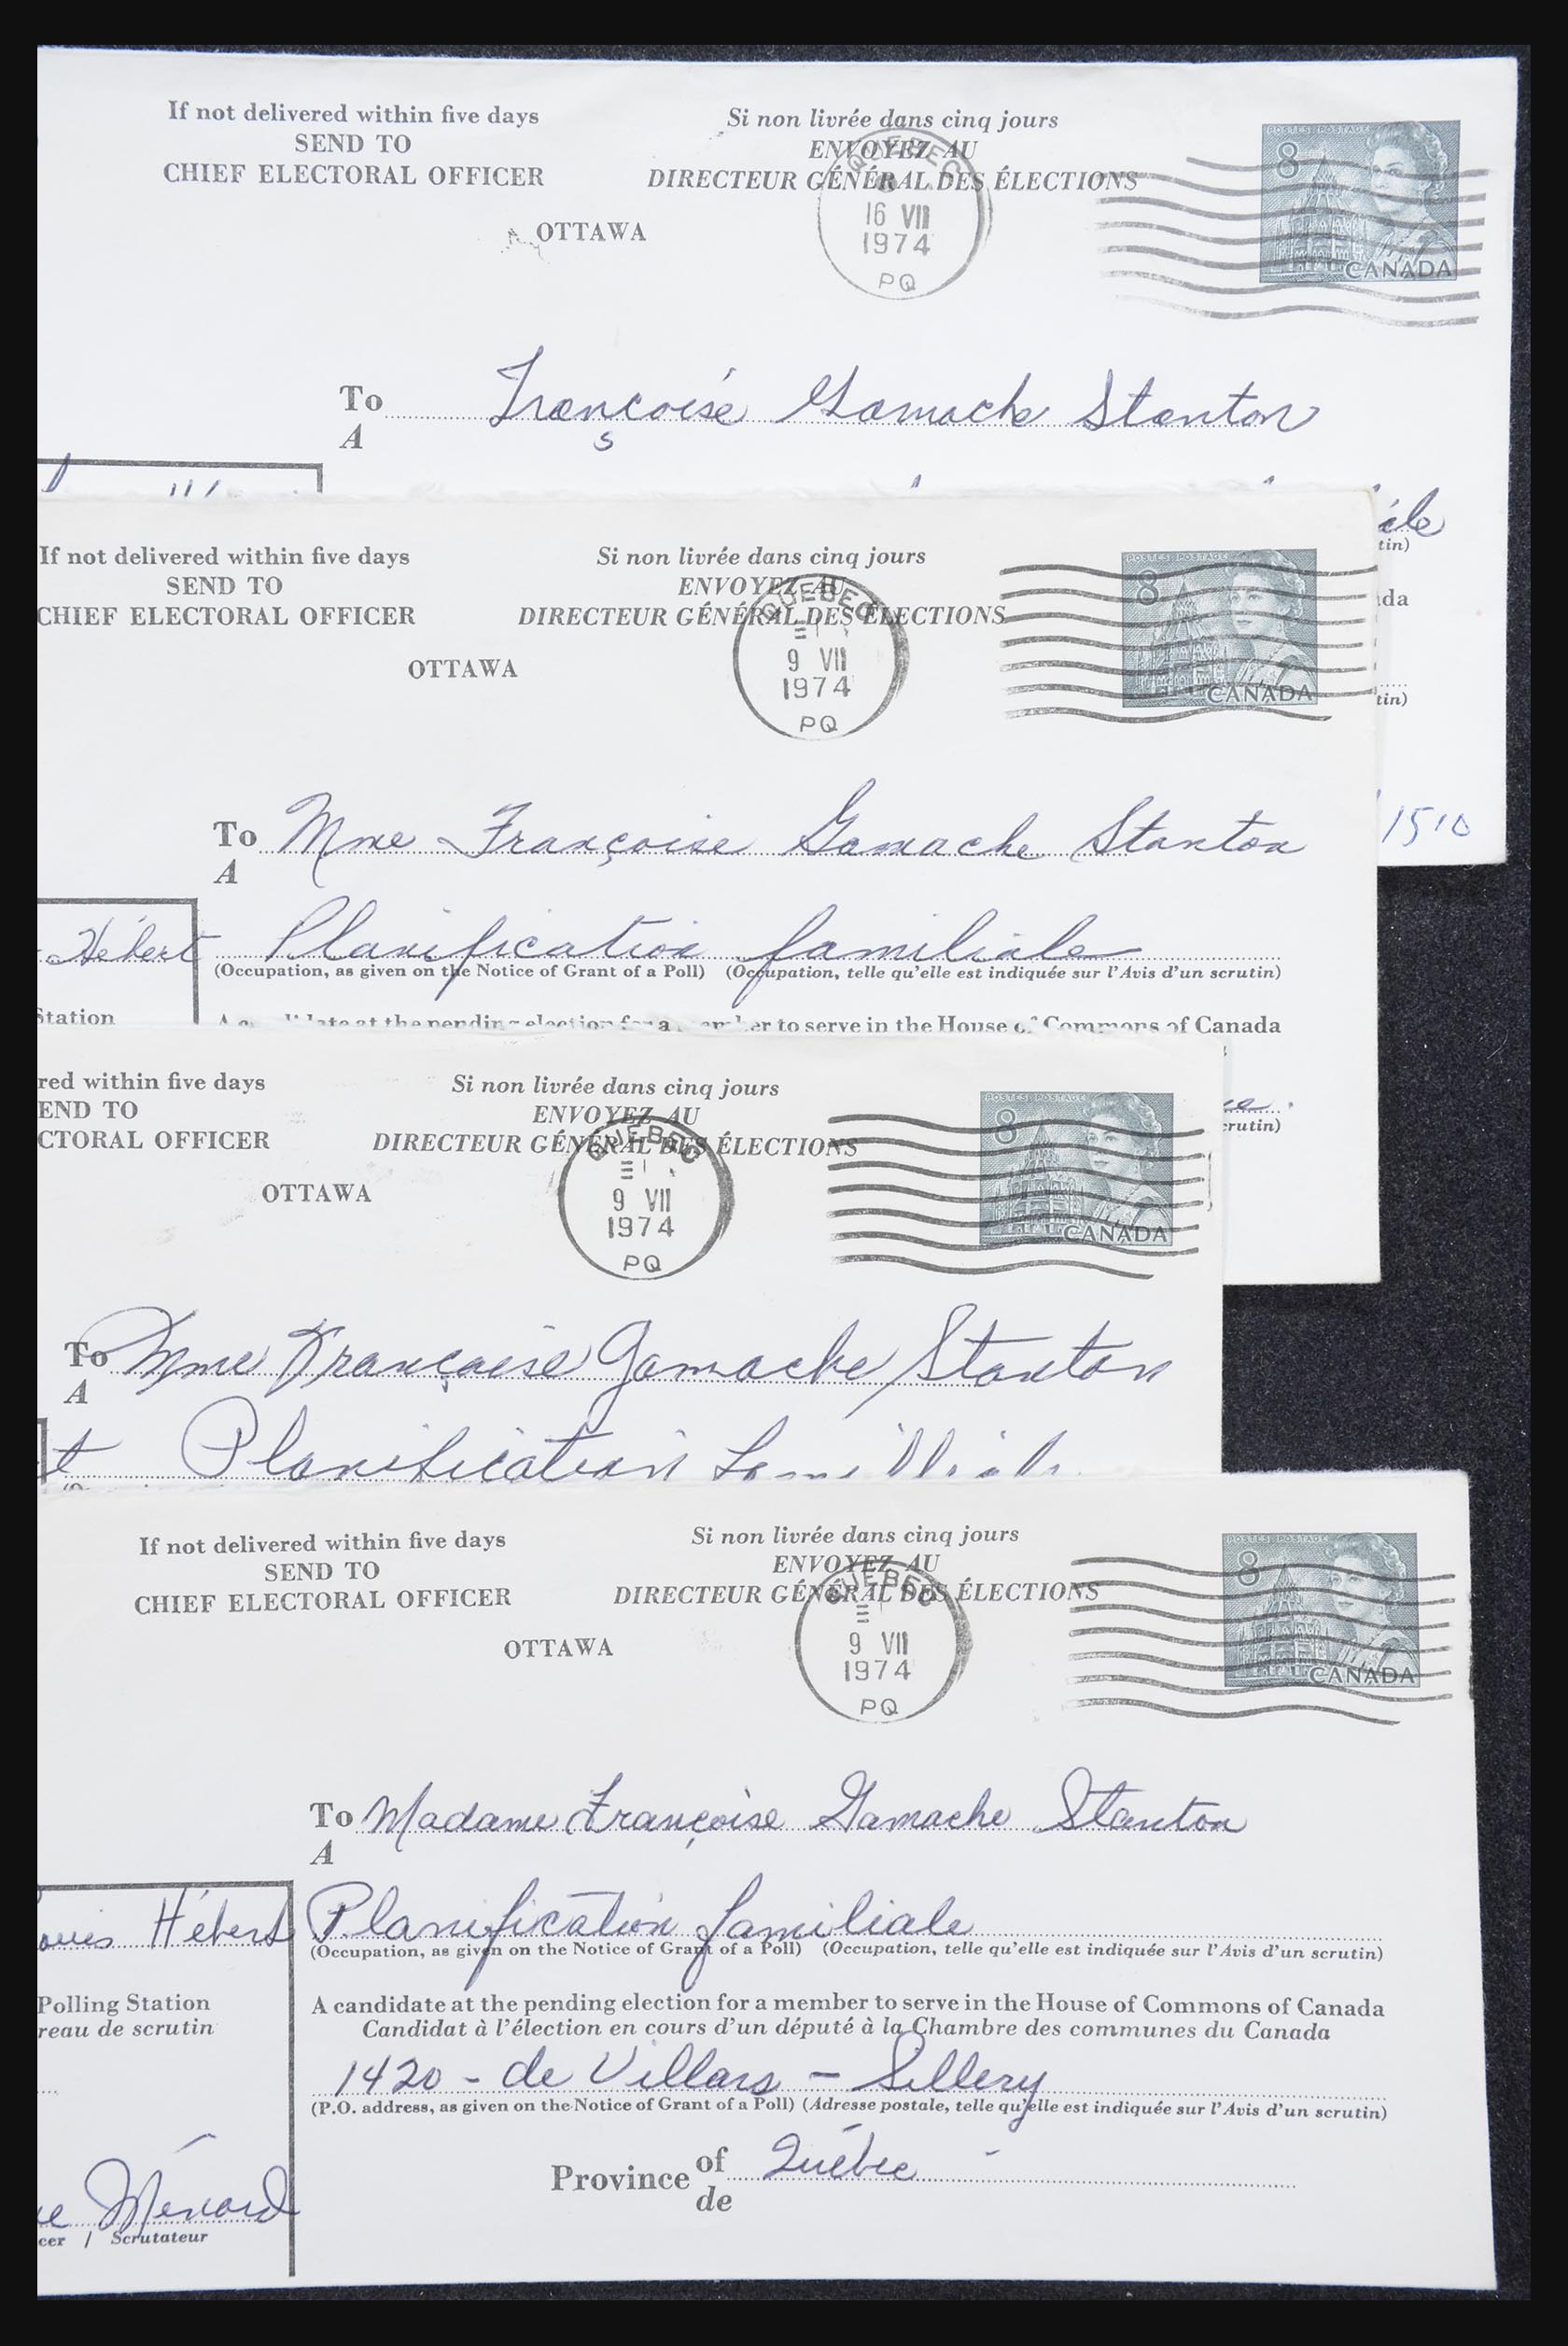 If not delivered within five days
SEND TO
CHIEF ELECTORAL OFFICER
Si non livrée dans cinq jours
ENVOYEZ AU
DIRECTEUR GÉNÉRAL DES ÉLECTIONS
OTTAWA
QUEBEC
16 VII
1974
PQ
POSTES POSTAGE
8
CANADA
To Françoise Gamache Stanton
A
ile
tin)
da
tin)
1510
If not delivered within five days
SEND TO
CHIEF ELECTORAL OFFICER
Si non livrée dans cinq jours
ENVOYEZ AU
DIRECTEUR GÉNÉRAL DES ÉLECTIONS
OTTAWA
QUEBEC
9 VII
1974
PQ
POSTES POSTAGE
8
CANADA
To Mme Françoise Gamache Stanton
A
Hébert Planification familiale
(Occupation, as given on the Notice of Grant of a Poll) (Occupation, telle qu'elle est indiquée sur l'Avis d'un scrutin)
Station
A candidate at the pending election for a member to serve in the House of Commons of Canada
crutin)
red within five days
END TO
CTORAL OFFICER
Si non livrée dans cinq jours
ENVOYEZ AU
DIRECTEUR GÉNÉRAL DES ÉLECTIONS
OTTAWA
QUEBEC
9 VII
1974
PQ
POSTES POSTAGE
8
CANADA
To Mme Françoise Gamache Stanton
A
t Planification familliale
If not delivered within five days
SEND TO
CHIEF ELECTORAL OFFICER
Si non livrée dans cinq jours
ENVOYEZ AU
DIRECTEUR GÉNÉRAL DES ÉLECTIONS
OTTAWA
QUEBEC
9 VII
1974
PQ
POSTES POSTAGE
8
CANADA
To Madame Françoise Gamache Stanton
A
ouis Hébert Planification familiale
(Occupation, as given on the Notice of Grant of a Poll) (Occupation, telle qu'elle est indiquée sur l'Avis d'un scrutin)
Polling Station
reau de scrutin
A candidate at the pending election for a member to serve in the House of Commons of Canada
Candidat à l'élection en cours d'un député à la Chambre des communes du Canada
1420 - de Villars - Sillery
(P.O. address, as given on the Notice of Grant of a Poll) (Adresse postale, telle qu'elle est indiquée sur l'Avis d'un scrutin)
Province of Québec
de
ue Ménard
cer / Scrutateur